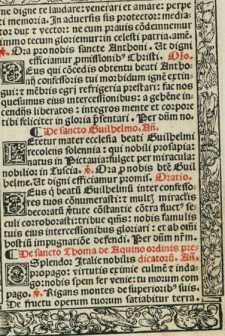 ne digne te laudare: venerari et amare: perpe
ti memoria. In aduersis sis protector: media-
tor: dux et vector: ne cum prauis cōdemnemur
immo tecum glorīemur in celesti patria. amē.
Ora pronobis sancte Anthoni. Ut digni
efficiamur ꝓmissionib⁹ Christi. Ořo.
Deus qui cōcedis obtentu beati Antho
nij confessoris tui morbidum ignē extin-
gui: et mēbris egri refrigeria prestari: fac nos
quesumus eius intercessionibus: a gehēne in-
cendijs liberatos: integros mente et corpore
tibi feliciter in gloria p̄sentari. Per dūm no.
De sancto Guilhelmo. Añ.
Letetur mater ecclesia beati Guilhelmi
recolens solennia: qui nobili prosapia:
natus in Pictauia: fulget per miracula:
nobilior in Tuscia. Ora ꝓ nobis bt̄e Guil
helme. Ut digni efficiamur promis. Oratio.
Deus q̇ beatū Guilhelmū inter confesso-
res tuos cōnumerasti: et mult⁹ miraclis
decorasti
culi corroborasti: tribue qm̄s: nobis famulis
tuis eius intercessionibus gloriari: et ab om̄i
hostili impugnatiōe defendi. Per dūm nr̄m.
De sancto Thoma de Aquino ordinis pre-
Splendor Italie nobilis dicatorū. Añ.
propago: virtutis eximie culmē et inda-
go: nobis spem fer venie: tu morum cō-
pago. Rigans montes de superiorib⁹ suis.
De fructu operum tuorum satiabitur terra.